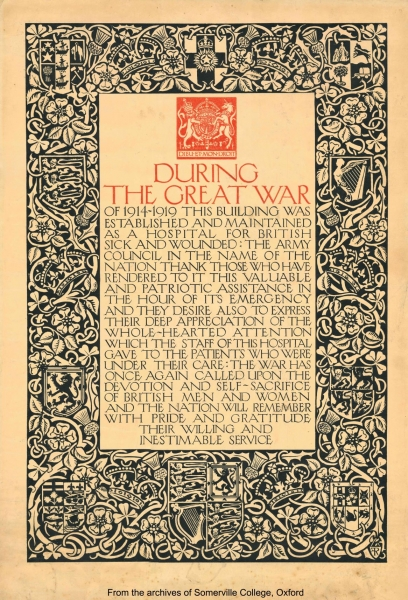 DIEU ET MON DROIT
DURING
THE GREAT WAR
OF 1914-1919 THIS BUILDING WAS
ESTABLISHED AND MAINTAINED
AS A HOSPITAL FOR BRITISH
SICK AND WOUNDED : THE ARMY
COUNCIL IN THE NAME OF THE
NATION THANK THOSE WHO HAVE
RENDERED TO IT THIS VALUABLE
AND PATRIOTIC ASSISTANCE IN
THE HOUR OF IT'S EMERGENCY
AND THEY DESIRE ALSO TO EXPRESS
THEIR DEEP APPRECIATION OF THE
WHOLE-HEARTED ATTENTION
WHICH THE STAFF OF THIS HOSPITAL
GAVE TO THE PATIENTS WHO WERE
UNDER THEIR CARE : THE WAR HAS
ONCE AGAIN CALLED UPON THE
DEVOTION AND SELF-SACRIFICE
OF BRITISH MEN AND WOMEN
AND THE NATION WILL REMEMBER
WITH PRIDE AND GRATITUDE
THEIR WILLING AND
INESTIMABLE SERVICE
From the archives of Somerville College, Oxford